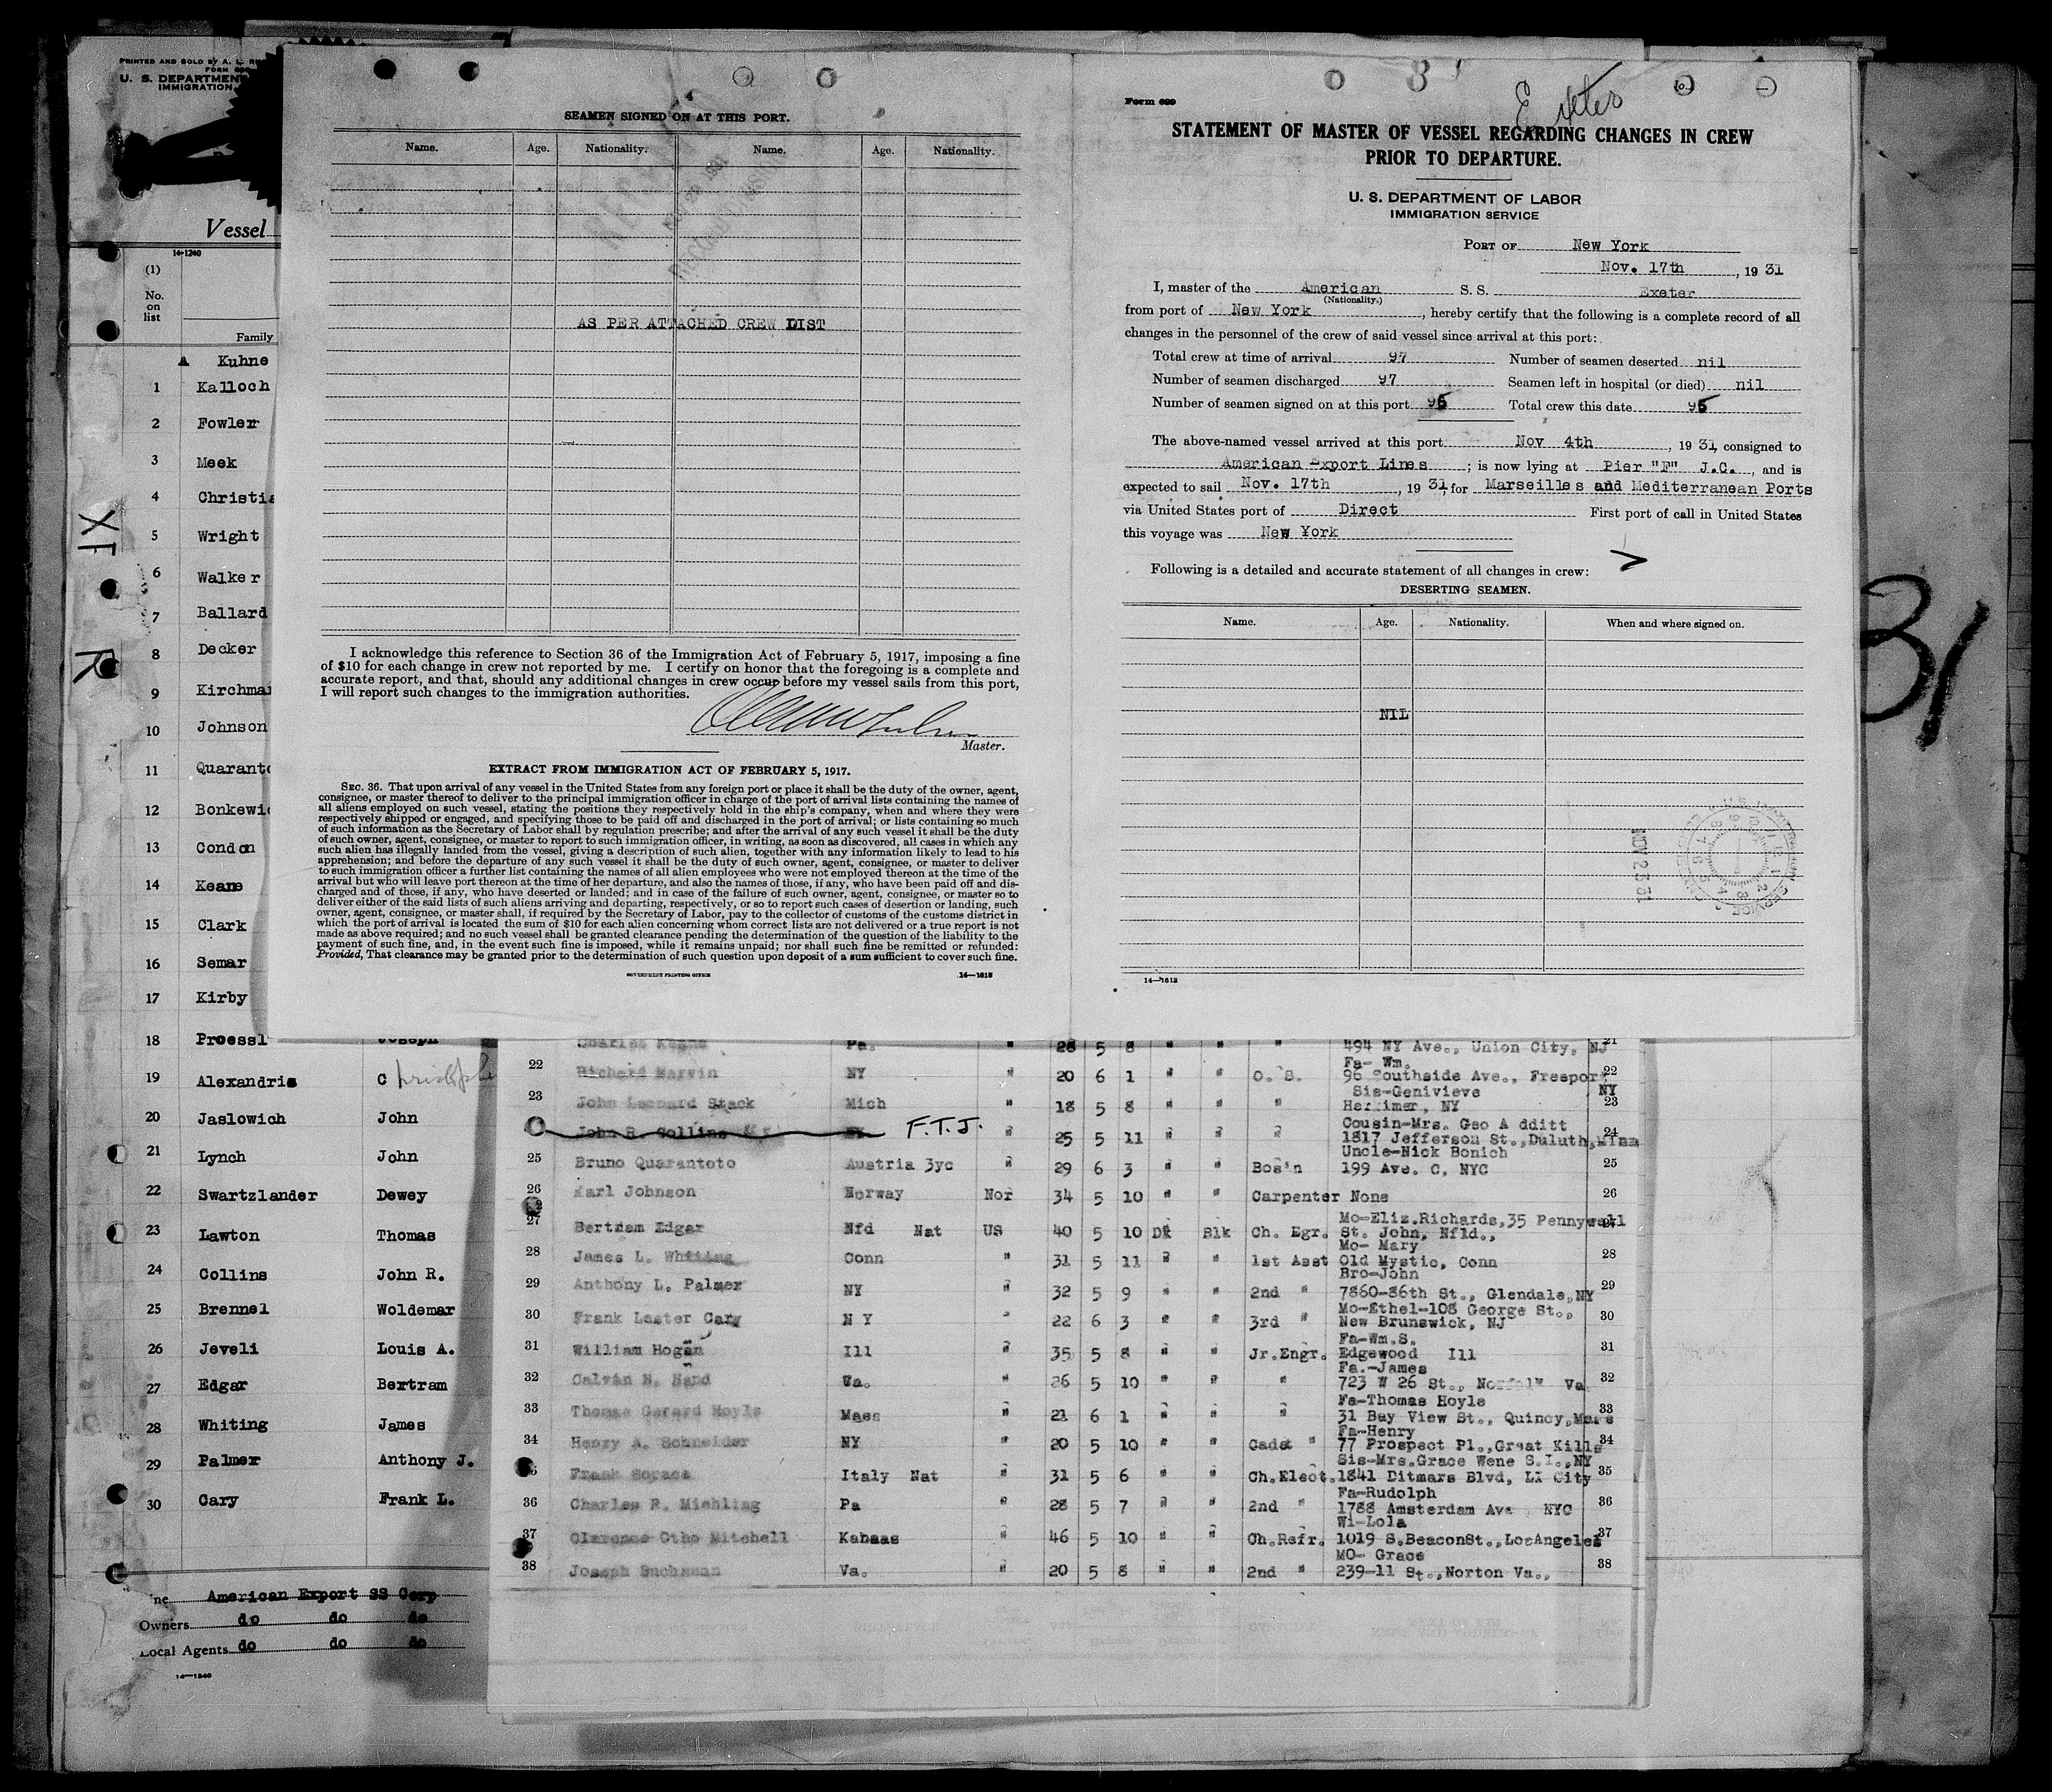 PRINTED AND SOLD BY A. L.
U. S. DEPARTMEN
IMMIGRATION
Vessel
14-1240
(1)
No.
on
list
Family
Kuhne
1 Kalloch
2 Fowler
3 Meek
4 Christia
5 Wright
6 Walker
7 Ballard
8 Decker
9 Kirchman
10 Johnson
11 Quaranto
12 Bonkewic
13 Condon
14 Keane
15 Clark
16 Semar
17 Kirby
18 Proessl Joseph
19 Alexandris C
20 Jaslowich John
21 Lynch John
22 Swartzlander Dewey
23 Lawton Thomas
24 Collins John R.
25 Brennel Woldemar
26 Jeveli Louis A.
27 Edgar Bertram
28 Whiting James
29 Palmer Anthony J.
30 Cary Frank L.
ne American Export SS Corp
Owners do do do
Local Agents do do do
14-1240
XF
R
4
SEAMEN SIGNED ON AT THIS PORT.
Name. Age. Nationality. Name. Age. Nationality.
AS PER ATTACHED CREW LIST
I acknowledge this reference to Section 36 of the Immigration Act of February 5, 1917, imposing a fine
of $10 for each change in crew not reported by me. I certify on honor that the foregoing is a complete and
accurate report, and that, should any additional changes in crew occur before my vessel sails from this port,
I will report such changes to the immigration authorities.
Master.
EXTRACT FROM IMMIGRATION ACT OF FEBRUARY 5, 1917.
SEC. 36. That upon arrival of any vessel in the United States from any foreign port or place it shall be the duty of the owner, agent,
consignee, or master thereof to deliver to the principal immigration officer in charge of the port of arrival lists containing the names of
all aliens employed on such vessel, stating the positions they respectively hold in the ship's company, when and where they were
respectively shipped or engaged, and specifying those to be paid off and discharged in the port of arrival; or lists containing so much
of such information as the Secretary of Labor shall by regulation prescribe; and after the arrival of any such vessel it shall be the duty
of such owner, agent, consignee, or master to report to such immigration officer, in writing, as soon as discovered, all cases in which any
such alien has illegally landed from the vessel, giving a description of such alien, together with any information likely to lead to his
apprehension; and before the departure of any such vessel it shall be the duty of such owner, agent, consignee, or master to deliver
to such immigration officer a further list containing the names of all alien employees who were not employed thereon at the time of the
arrival but who will leave port thereon at the time of her departure, and also the names of those, if any, who have been paid off and dis-
charged and of those, if any, who have deserted or landed; and in case of the failure of such owner, agent, consignee, or master so to
deliver either of the said lists of such aliens arriving and departing, respectively, or so to report such cases of desertion or landing, such
owner, agent, consignee, or master shall, if required by the Secretary of Labor, pay to the collector of customs of the customs district in
which the port of arrival is located the sum of $10 for each alien concerning whom correct lists are not delivered or a true report is not
made as above required; and no such vessel shall be granted clearance pending the determination of the question of the liability to the
payment of such fine, and, in the event such fine is imposed, while it remains unpaid; nor shall such fine be remitted or refunded:
Provided, That clearance may be granted prior to the determination of such question upon deposit of a sum sufficient to cover such fine.
GOVERNMENT PRINTING OFFICE 14-1613
Exeter
Form 689
STATEMENT OF MASTER OF VESSEL REGARDING CHANGES IN CREW
PRIOR TO DEPARTURE.
U. S. DEPARTMENT OF LABOR
IMMIGRATION SERVICE
PORT OF New York
Nov. 17th, 1931
I, master of the American S. S. Exeter
(Nationality.)
from port of New York, hereby certify that the following is a complete record of all
changes in the personnel of the crew of said vessel since arrival at this port:
Total crew at time of arrival 97 Number of seamen deserted nil
Number of seamen discharged 97 Seamen left in hospital (or died) nil
Number of seamen signed on at this port 95 Total crew this date 95
The above-named vessel arrived at this port Nov 4th, 1931, consigned to
American Export Lines; is now lying at Pier "F" J.C., and is
expected to sail Nov. 17th, 1931, for Marseilles and Mediterranean Ports
via United States port of Direct First port of call in United States
this voyage was New York
Following is a detailed and accurate statement of all changes in crew: >
DESERTING SEAMEN.
Name. Age. Nationality. When and where signed on.
NIL
NOV 23 31
14-1613
31
Charles Keane Pa. " 28 5 8 " " " 494 NY Ave., Union City, NJ 21
Fa- Wm.
22 Richard Marvin NY " 20 6 1 " " O. S. 96 Southside Ave., Freeport, NY 22
Sis-Genivieve
23 John Leonard Stack Mich " 18 5 8 " " " Herkimer, NY 23
Cousin-Mrs. Geo A dditt
John R. Collins NY F.T.J. " 25 5 11 " " " 1817 Jefferson St., Duluth, Minn 24
Uncle-Nick Bonich
25 Bruno Quarantoto Austria 3yc " 29 6 3 " " Bosn 199 Ave. C, NYC 25
26 Karl Johnson Norway Nor 34 5 10 " " Carpenter None 26
Mo-Eliz.Richards,35 Pennywell
27 Bertram Edgar Nfd Nat US 40 5 10 Dk Blk Ch. Egr. St. John, Nfld.,
Mo- Mary
28 James L. Whiting Conn " 31 5 11 " " 1st Asst Old Mystic, Conn 28
Bro-John
29 Anthony L. Palmer NY " 32 5 9 " " 2nd " 7860-86th St., Glendale, NY 29
Mo-Ethel-108 George St.,
30 Frank Laster Cary N Y " 22 6 3 " " 3rd " New Brunswick, NJ 30
Fa-Wm.S.
31 William Hogan Ill " 35 5 8 " " Jr.Engr. Edgewood Ill 31
Fa.-James
32 Calvin H. Hand Va. " 26 5 10 " " " 723 W 26 St., Norfolk Va 32
Fa-Thomas Hoyle
33 Thomas Gerard Hoyle Mass " 21 6 1 " " " 31 Bay View St., Quincy, Mass 33
Fa-Henry
34 Henry A. Schneider NY " 20 5 10 " " Cadet " 77 Prospect Pl., Great Kills 34
Sis-Mrs.Grace Wene S.I.,NY
Frank Sorace Italy Nat " 31 5 6 " " Ch.Elect. 1841 Ditmars Blvd, LI City 35
Fa-Rudolph
36 Charles R. Miehling Pa " 28 5 7 " " 2nd " 1788 Amsterdam Ave NYC 36
Wi-Lola
37 Clarence Otho Mitchell Kansas " 46 5 10 " " Ch.Refr. 1019 S.BeaconSt., LosAngeles 37
MO- Grace
38 Joseph Buchanan Va. " 20 5 8 " " 2nd " 239-11 St., Norton Va., 38